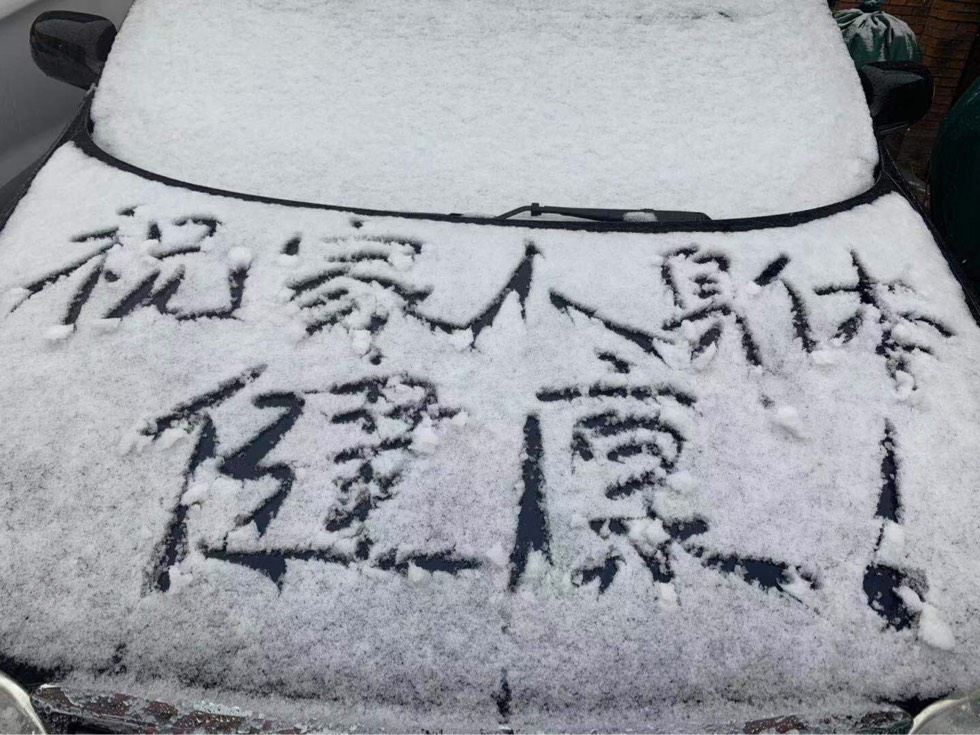 祝家人身体
健康!